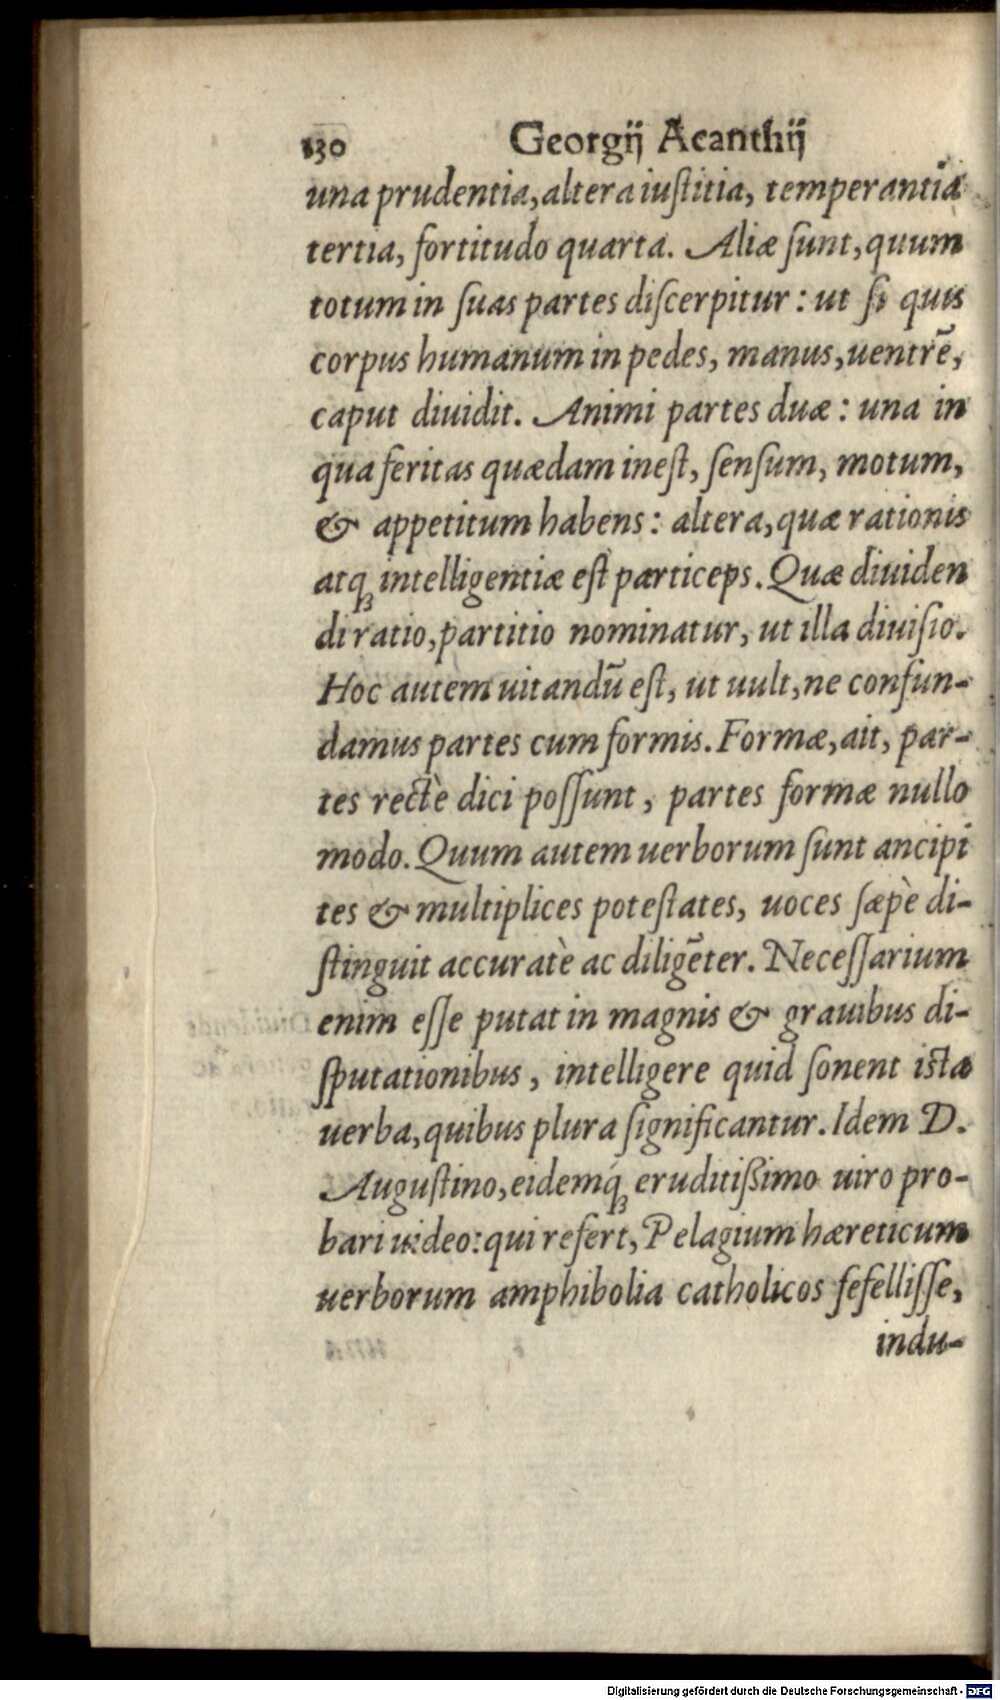 130 Georgij Acanthij
una prudentia, altera iuſtitia, temperantia
tertia, fortitudo quarta. Aliæ ſunt, quum
totum in ſuas partes diſcerpitur: ut ſi quis
corpus humanum in pedes, manus, uentrẽ,
caput diuidit. Animi partes duæ: una in
qua feritas quædam ineſt, ſenſum, motum,
& appetitum habens: altera, quæ rationis
atq; intelligentiæ eſt particeps. Quæ diuiden
di ratio, partitio nominatur, ut illa diuiſio.
Hoc autem uitandũ eſt, ut uult, ne confun-
damus partes cum formis. Formæ, ait, par-
tes rectè dici poſſunt, partes formæ nullo
modo. Quum autem uerborum ſunt ancipi
tes & multiplices poteſtates, uoces ſæpè di-
ſtinguit accuratè ac diligẽter. Neceſſarium
enim eſſe putat in magnis & grauibus di-
ſputationibus, intelligere quid ſonent iſta
uerba, quibus plura ſignificantur. Idem D.
Auguſtino, eidemq́; eruditißimo uiro pro-
bari uideo: qui refert, Pelagium hæreticum
uerborum amphibolia catholicos fefelliſſe,
indu-
Digitalisierung gefördert durch die Deutsche Forschungsgemeinschaft - DFG